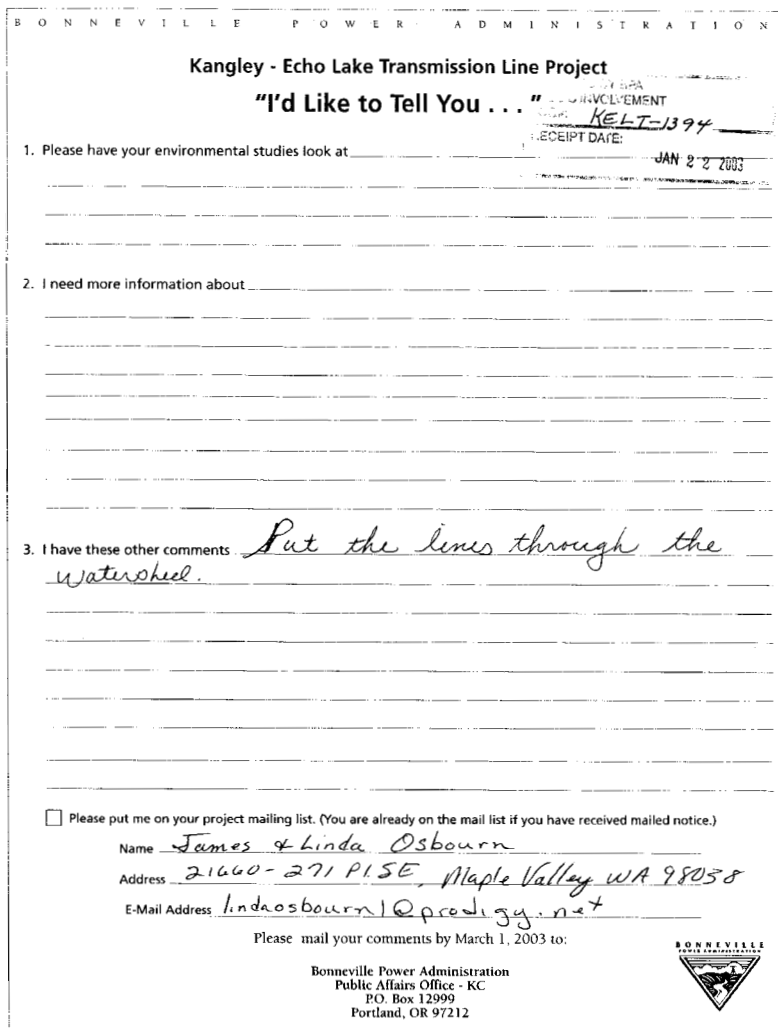 BONNEVILLE POWER ADMINISTRATION
Kangley - Echo Lake Transmission Line Project
"I'd Like to Tell You . . . "
INVOLVEMENT
KELT-1394
RECEIPT DATE:
JAN 22 2003
1. Please have your environmental studies look at
2. I need more information about
3. I have these other comments Put the lines through the
watershed.
Please put me on your project mailing list. (You are already on the mail list if you have received mailed notice.)
Name James & Linda Osbourn
Address 21660-271 Pl. SE, Maple Valley WA 98038
E-Mail Address lindaosbourn1@prodigy.net
Please mail your comments by March 1, 2003 to:
Bonneville Power Administration
Public Affairs Office - KC
P.O. Box 12999
Portland, OR 97212
BONNEVILLE
POWER ADMINISTRATION